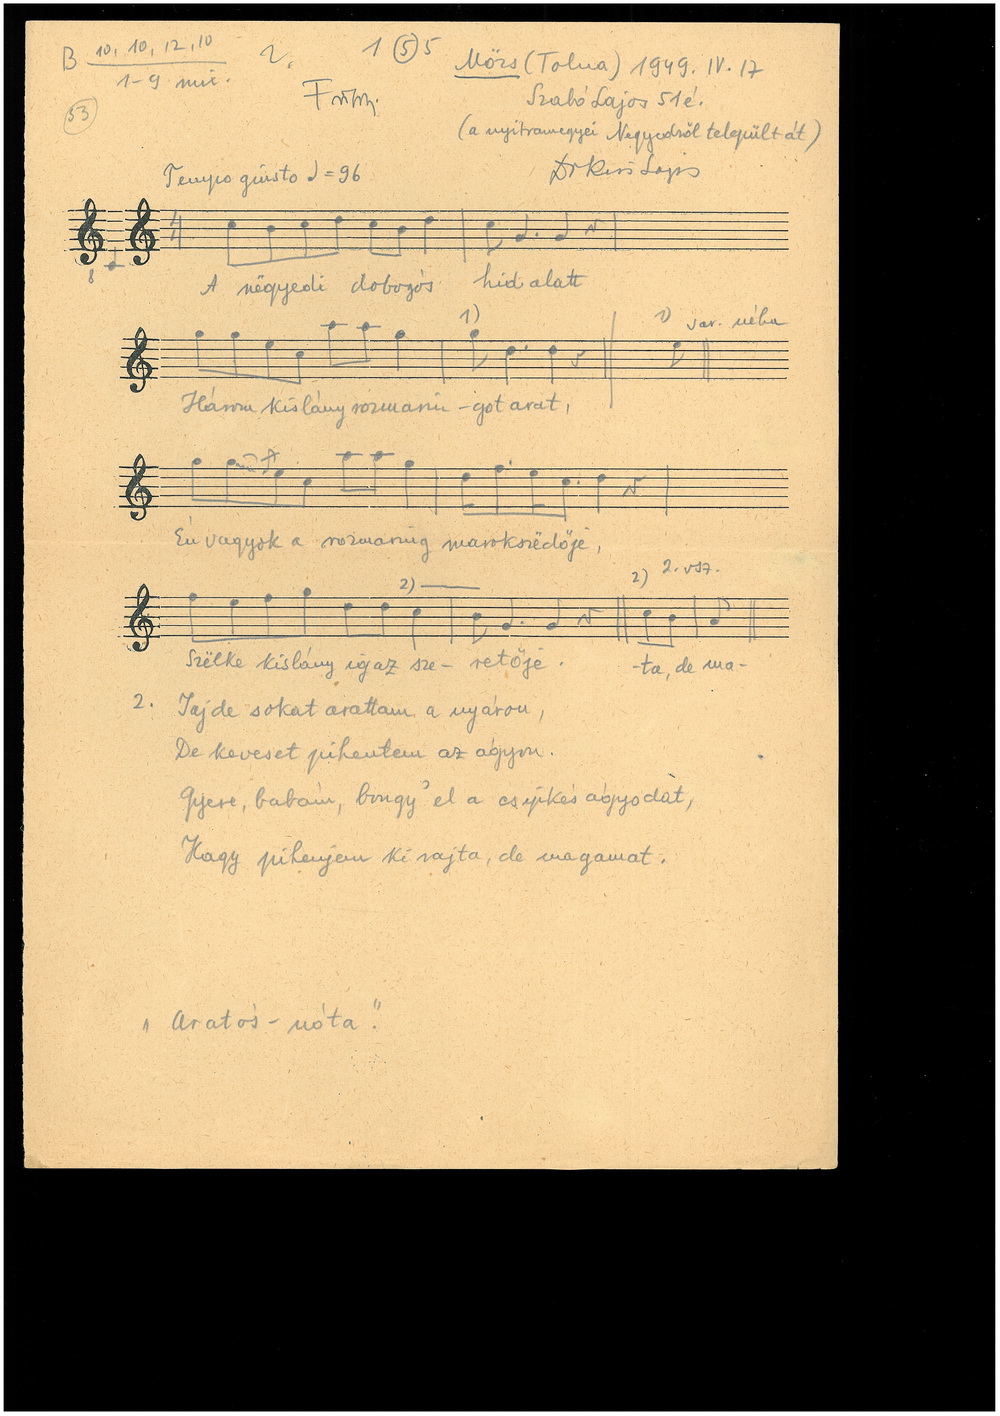 B 10, 10, 12, 10
1-9 mix.
2.
1 (5) 5
Mözs (Tolna) 1949. IV. 17
Szabó Lajos 51 é.
(a nyitramegyei Negyedről települt át)
Dr Kiss Lajos
53
Tempo giusto ♩=96
8
4
A nëgyedi dobogós híd alatt
1)
1) var. néha
Három kislány rozmarin-got arat,
Én vagyok a rozmaring marokszëdője,
2)
2) 2. vsz.
Szëlke kislány igaz sze- retője.
-ta, de ma-
2. Jaj de sokat arattam a nyáron,
De keveset pihentem az ágyon.
Gyere, babám, bongy' el a csipkés ágyodat,
Hagy pihenjem ki rajta, de magamat.
"Aratós-nóta".